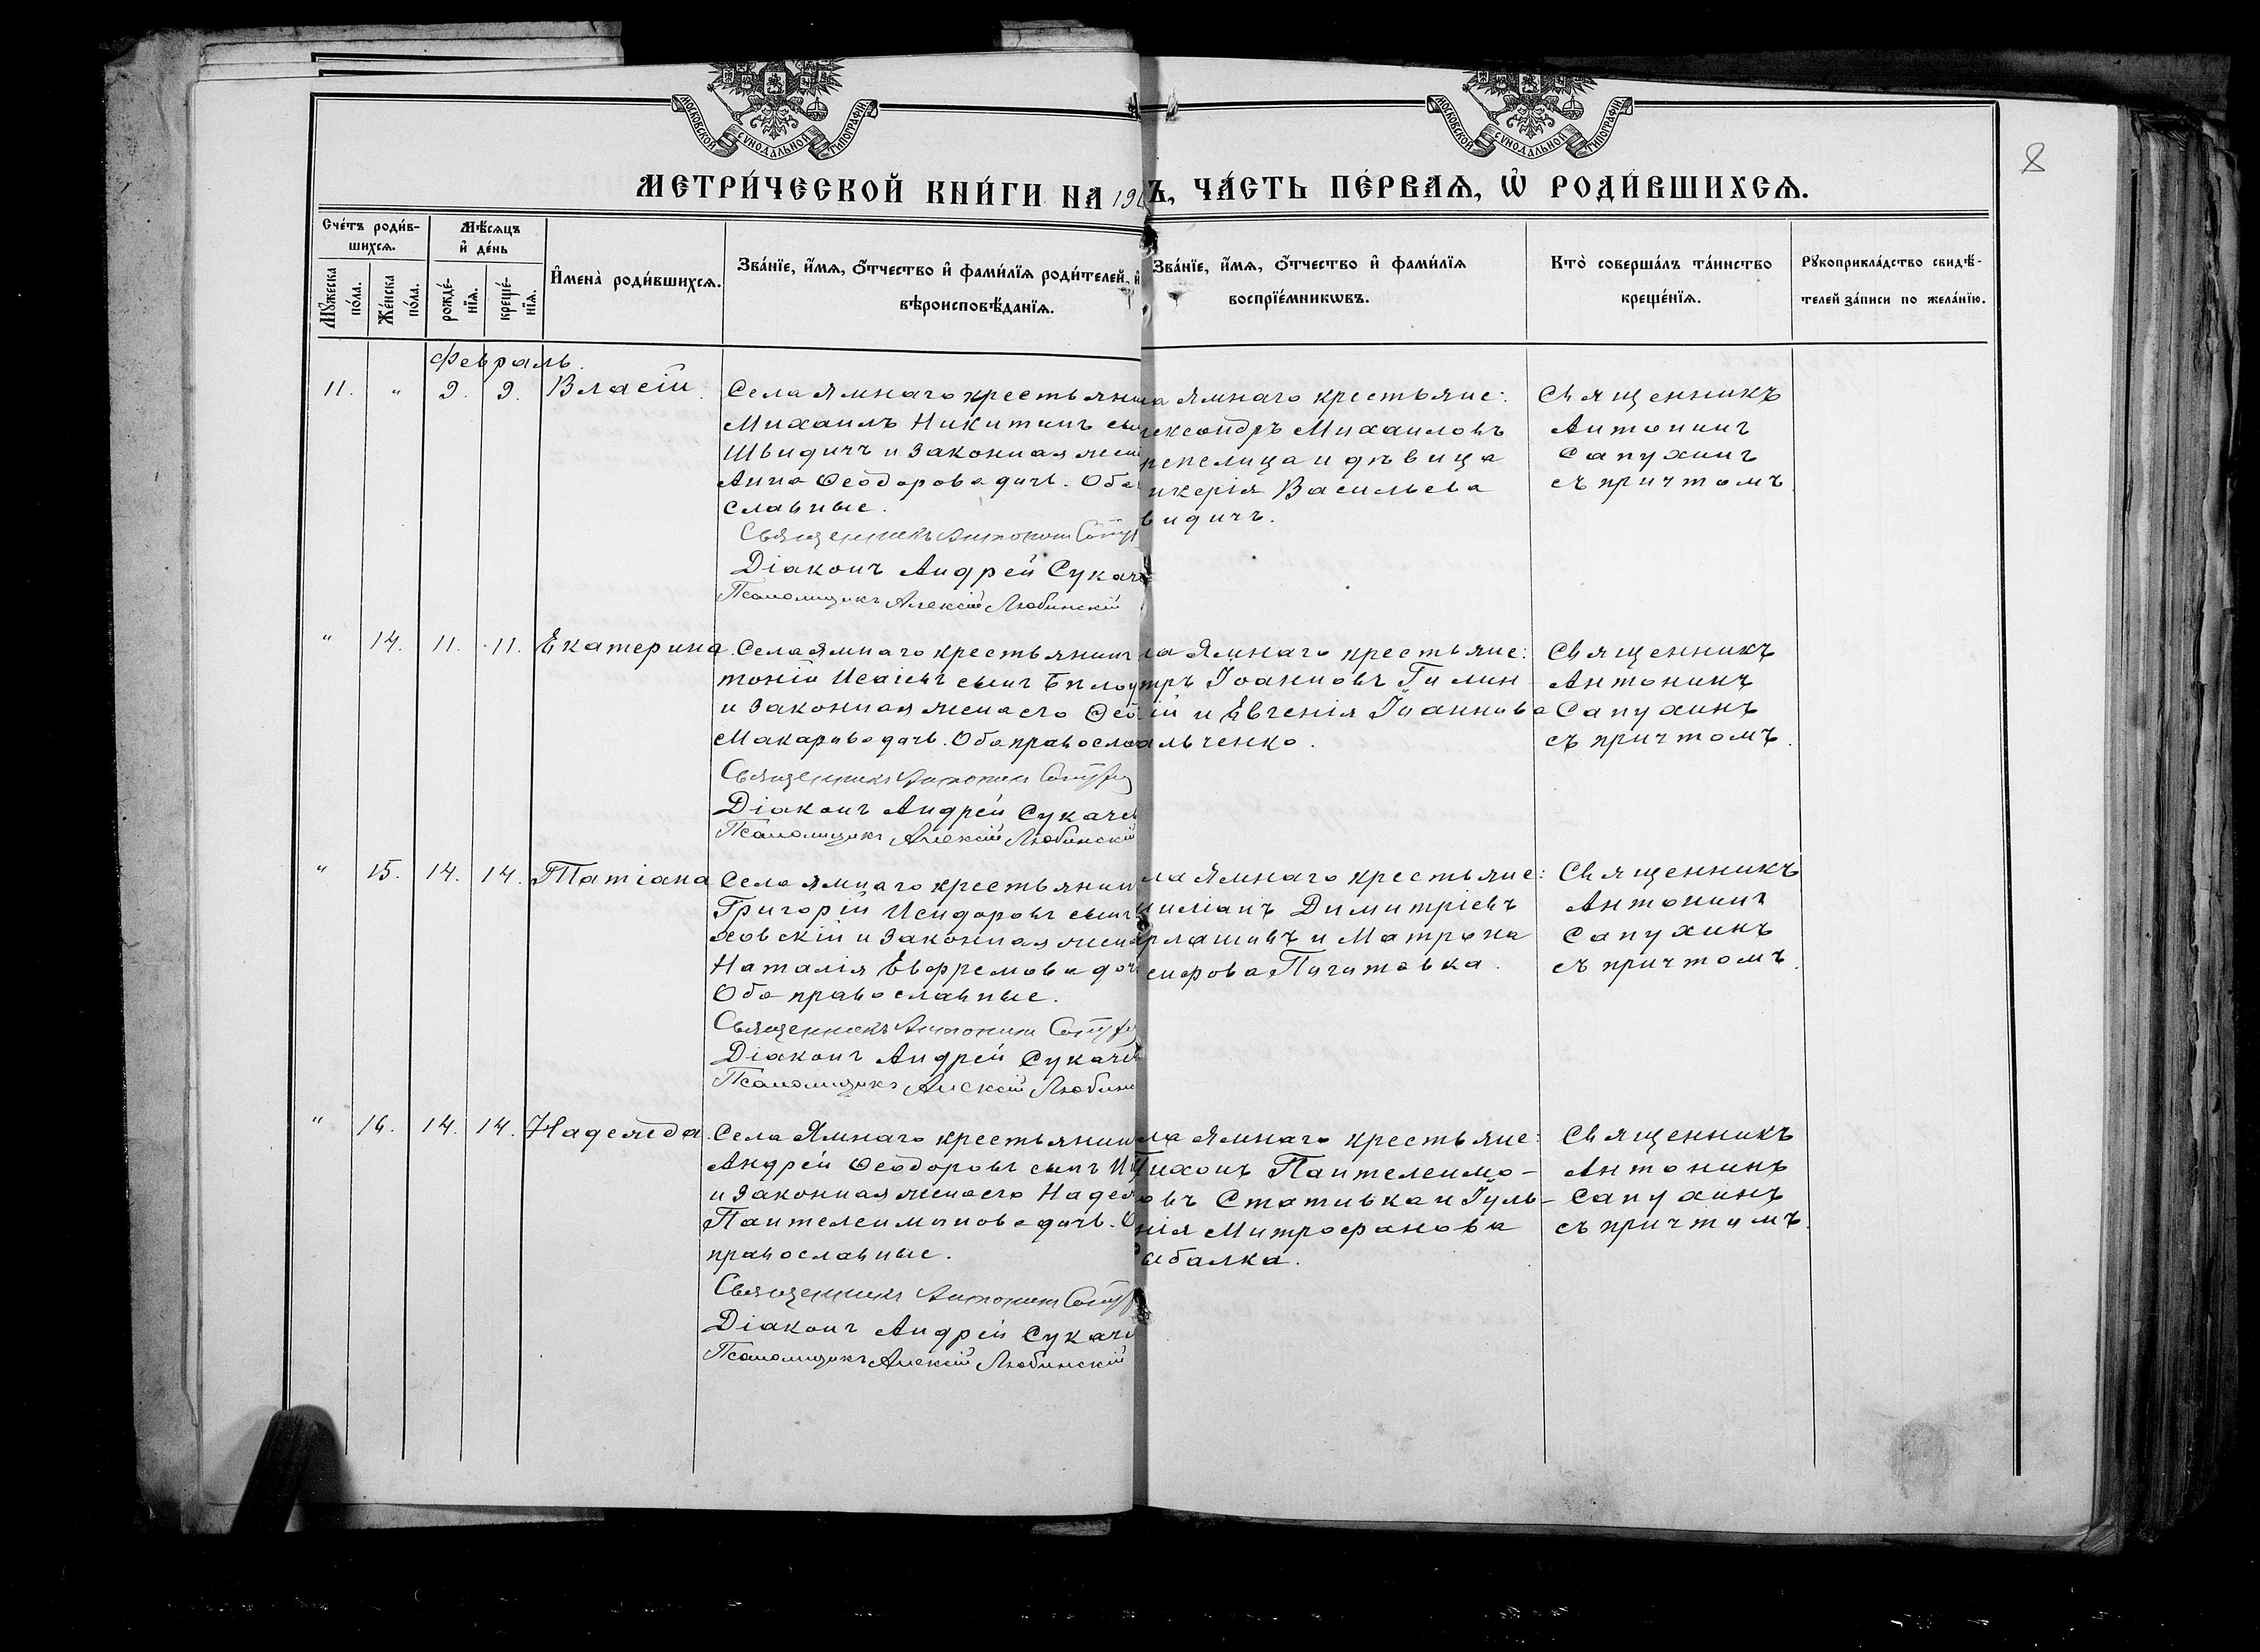 МОСКОВСКОЙ СУНОДАЛЬНОЙ ТИПОГРАФИИ
МОСКОВСКОЙ СУНОДАЛЬНОЙ ТИПОГРАФИИ
8
МЕТРИ́ЧЕСКОЙ КНИ́ГИ НА 19
Ъ, ЧА́СТЬ ПЕ́РВАѦ, Ѡ҆ РОДИ́ВШИХСѦ.
Сче́тъ роди́в-
шихсѧ.
Мꙋ́жеска
по́ла.
Же́нска
по́ла.
Мѣ́сѧцъ
и҆ де́нь
рожде́-
нїѧ.
креще́-
нїѧ.
И҆мена̀ роди́вшихсѧ.
Зва́нїе, и҆́мѧ, ѻ҆́тчество и҆ фами́лїѧ роди́телей, и҆
вѣроисповѣ́данїѧ.
Зва́нїе, и҆́мѧ, ѻ҆́тчество и҆ фами́лїѧ
воспрїе́мникѡвъ.
Кто̀ соверша́лъ та́инство
креще́нїѧ.
Рꙋкоприкла́дство свидѣ́-
телей за́писи по жела́нїю.
Февраль.
11. " 9. 9. Власій.
Села Ямнаго крестьянин
Михаилъ Никитинъ сын
Швидичъ и законная жен
Анна Ѳеодорова дочь. Оба
славные.
Священникъ Антонин Сапух
Діаконъ Андрей Сукач
Псаломщикъ Алексій Любинскій
а Ямнаго крестьяне:
лександръ Михаиловъ
репелица и дѣвица
икерія Васильева
видичъ.
Священникъ
Антонинъ
Сапухинъ
съ причтомъ.
" 14. 11. 11. Екатерина.
Села Ямнаго крестьянинъ
тоній Исаіевъ сынъ Бѣлоу
и законная жена его Ѳео
Макарова дочь. Оба правосла
Священникъ Антонин Сапух
Діаконъ Андрей Сукачев
Псаломщикъ Алексій Любинскій
ла Ямнаго крестьяне:
тръ Іоанновъ Гилин-
ій и Евгенія Іоаннова
альченко.
Священникъ
Антонинъ
Сапухинъ
съ причтомъ.
" 15. 14. 14. Татіана
Села Ямнаго крестьянин
Григорій Исидоровъ сынъ
ховскій и законная жена
Наталія Евфремова доч
Оба православные.
Священникъ Антонин Сапух
Діаконъ Андрей Сукачев
Псаломщикъ Алексій Любин
ла Ямнаго крестьяне:
миліанъ Димитріевъ
рлашовъ и Матрона
сифова Пугутовка.
Священникъ
Антонинъ
Сапухинъ
съ причтомъ.
" 16. 14. 14. Надежда.
Села Ямнаго крестьянин
Андрей Ѳеодоровъ сынъ
и законная жена его Надеж
Пантелеимонова дочь. О
православные.
Священникъ Антонин Сапух
Діаконъ Андрей Сукаче
Псаломщикъ Алексій Любинскій
ла Ямнаго крестьяне:
Тихонъ Пантелеимо-
овъ Стативка и Іуль-
нія Митрофанова
Рыбалка.
Священникъ
Антонинъ
Сапухинъ
съ причтомъ.